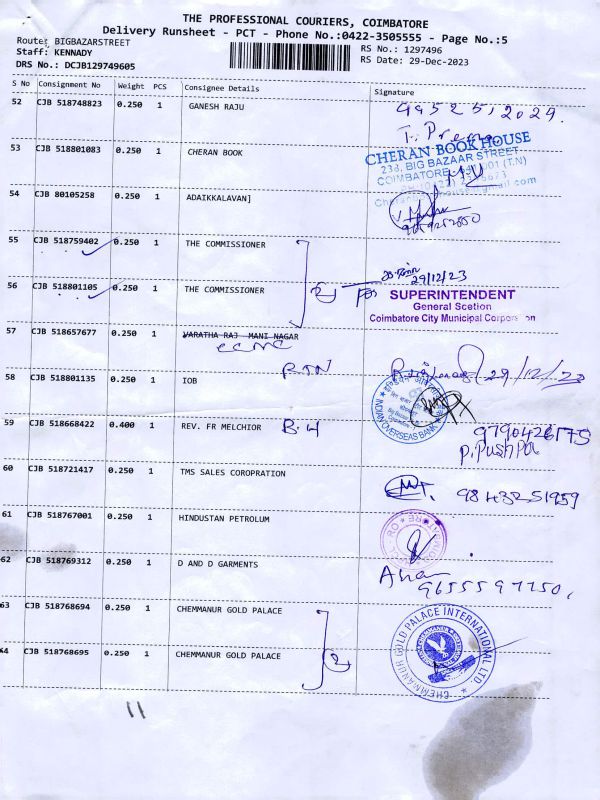 THE PROFESSIONAL COURIERS, COIMBATORE
Delivery Runsheet - PCT - Phone No.:0422-3505555 - Page No.:5
Route: BIGBAZARSTREET
Staff: KENNADY
DRS No.: DCJB129749605
RS No.: 1297496
RS Date: 29-Dec-2023
S No Consignment No Weight PCS Consignee Details Signature
52 CJB 518748823 0.250 1 GANESH RAJU
T. Prema
53 CJB 518801083 0.250 1 CHERAN BOOK
CHERAN BOOK HOUSE
238, BIG BAZAAR STREET
COIMBATORE 001 (T.N)
54 CJB 80105258 0.250 1 ADAIKKALAVAN]
55 CJB 518759402 0.250 1 THE COMMISSIONER
29/12/23
56 CJB 518801105 0.250 1 THE COMMISSIONER
For SUPERINTENDENT
General Scetion
Coimbatore City Municipal Corporation
57 CJB 518657677 0.250 1 VARATHA RAJ MANI NAGAR
CCMC
RTN
29/12/23
58 CJB 518801135 0.250 1 IOB
INDIAN OVERSEAS BANK
59 CJB 518668422 0.400 1 REV. FR MELCHIOR B.H
9790426175
P. Pushpa
60 CJB 518721417 0.250 1 TMS SALES COROPRATION
9843251959
61 CJB 518767001 0.250 1 HINDUSTAN PETROLUM
62 CJB 518769312 0.250 1 D AND D GARMENTS
9655597750,
63 CJB 518768694 0.250 1 CHEMMANUR GOLD PALACE
CHEMMANUR GOLD PALACE INTERNATIONAL LTD.
64 CJB 518768695 0.250 1 CHEMMANUR GOLD PALACE
2
11